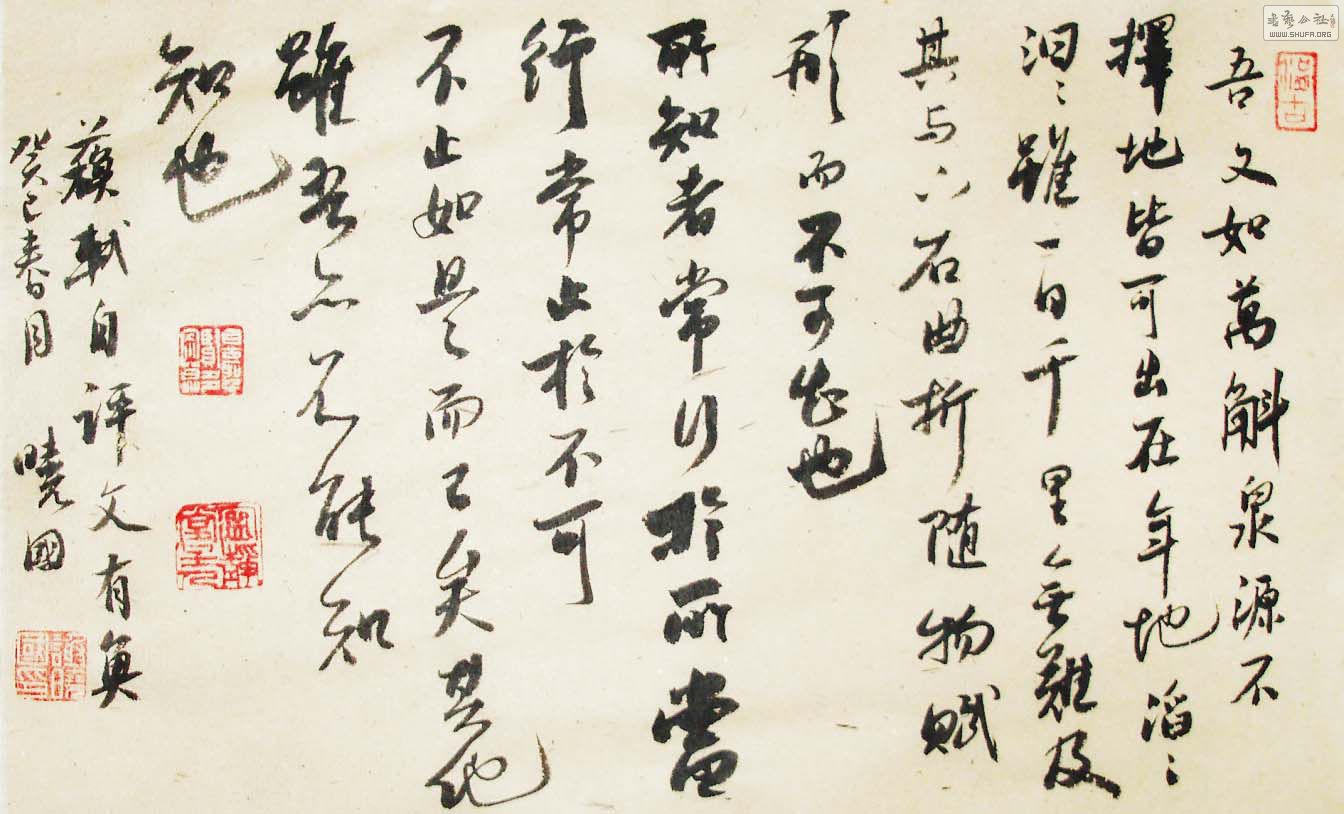 吾文如萬斛泉源不
擇地皆可出在平地滔〻
汩〻雖一日千里無難及
其與山石曲折随物賦
形而不可知也
所知者常行於所當
行常止於不可
不止如是而已矣其他
雖吾亦不能知
知也
蘇軾自評文有奐
癸巳春月
曉國
書藝公社
WWW.SHUFA.ORG